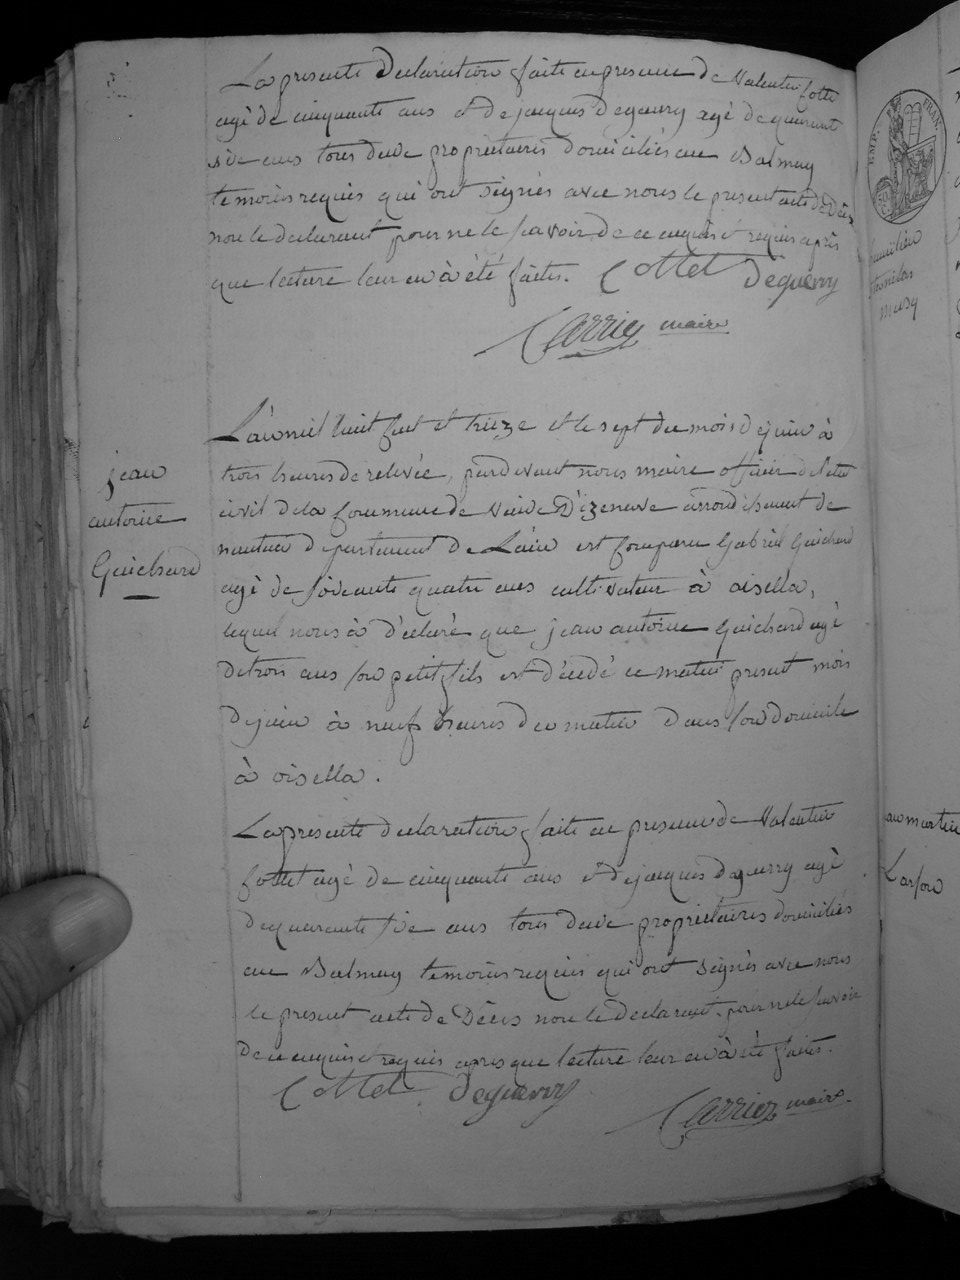 La presente Declaration faite en presence De Valentin Cottet
agé de cinquante ans et de jacques Deguerry agé de quarant
sixe ans tous deux proprietaires domiciliés au Balmay
temoins requis qui ont signés avec nous le present acte de Décès
non le declarant pour ne le savoir de ce enquis et requis après
que lecture leur en à été faite. Cottet Deguerry
Carrier maire
L'an mil huit cent et treize et le sept du mois de juin à
trois heures de relevée, pardevant nous maire officier de letat
civil de la commune de Vieu D'izenave arrondisement de
nantua departement de Lain est comparu Gabriel Guichard
agé de soixante quatre ans cultivateur à oisella,
lequel nous à déclaré que jean antoine Guichard agé
de trois ans son petit fils est décedé ce matin present mois
de juin à neuf heures du matin dans son domicile
à oisella.
La presente declaration faite en presence de Valentin
Cottet agé de cinquante ans et de jacques deguerry agé
de quarante sixe ans tous deux proprietaires domiciliés
au Balmay temoins requis qui ont signés avec nous
le present acte de Décès non le declarant pour ne le savoir
de ce enquis et requis apres que lecture leur en à été faite.
Cottet Deguerry
Carrier maire
jean
antoine
Guichard
EMP. FRAN.
Larson